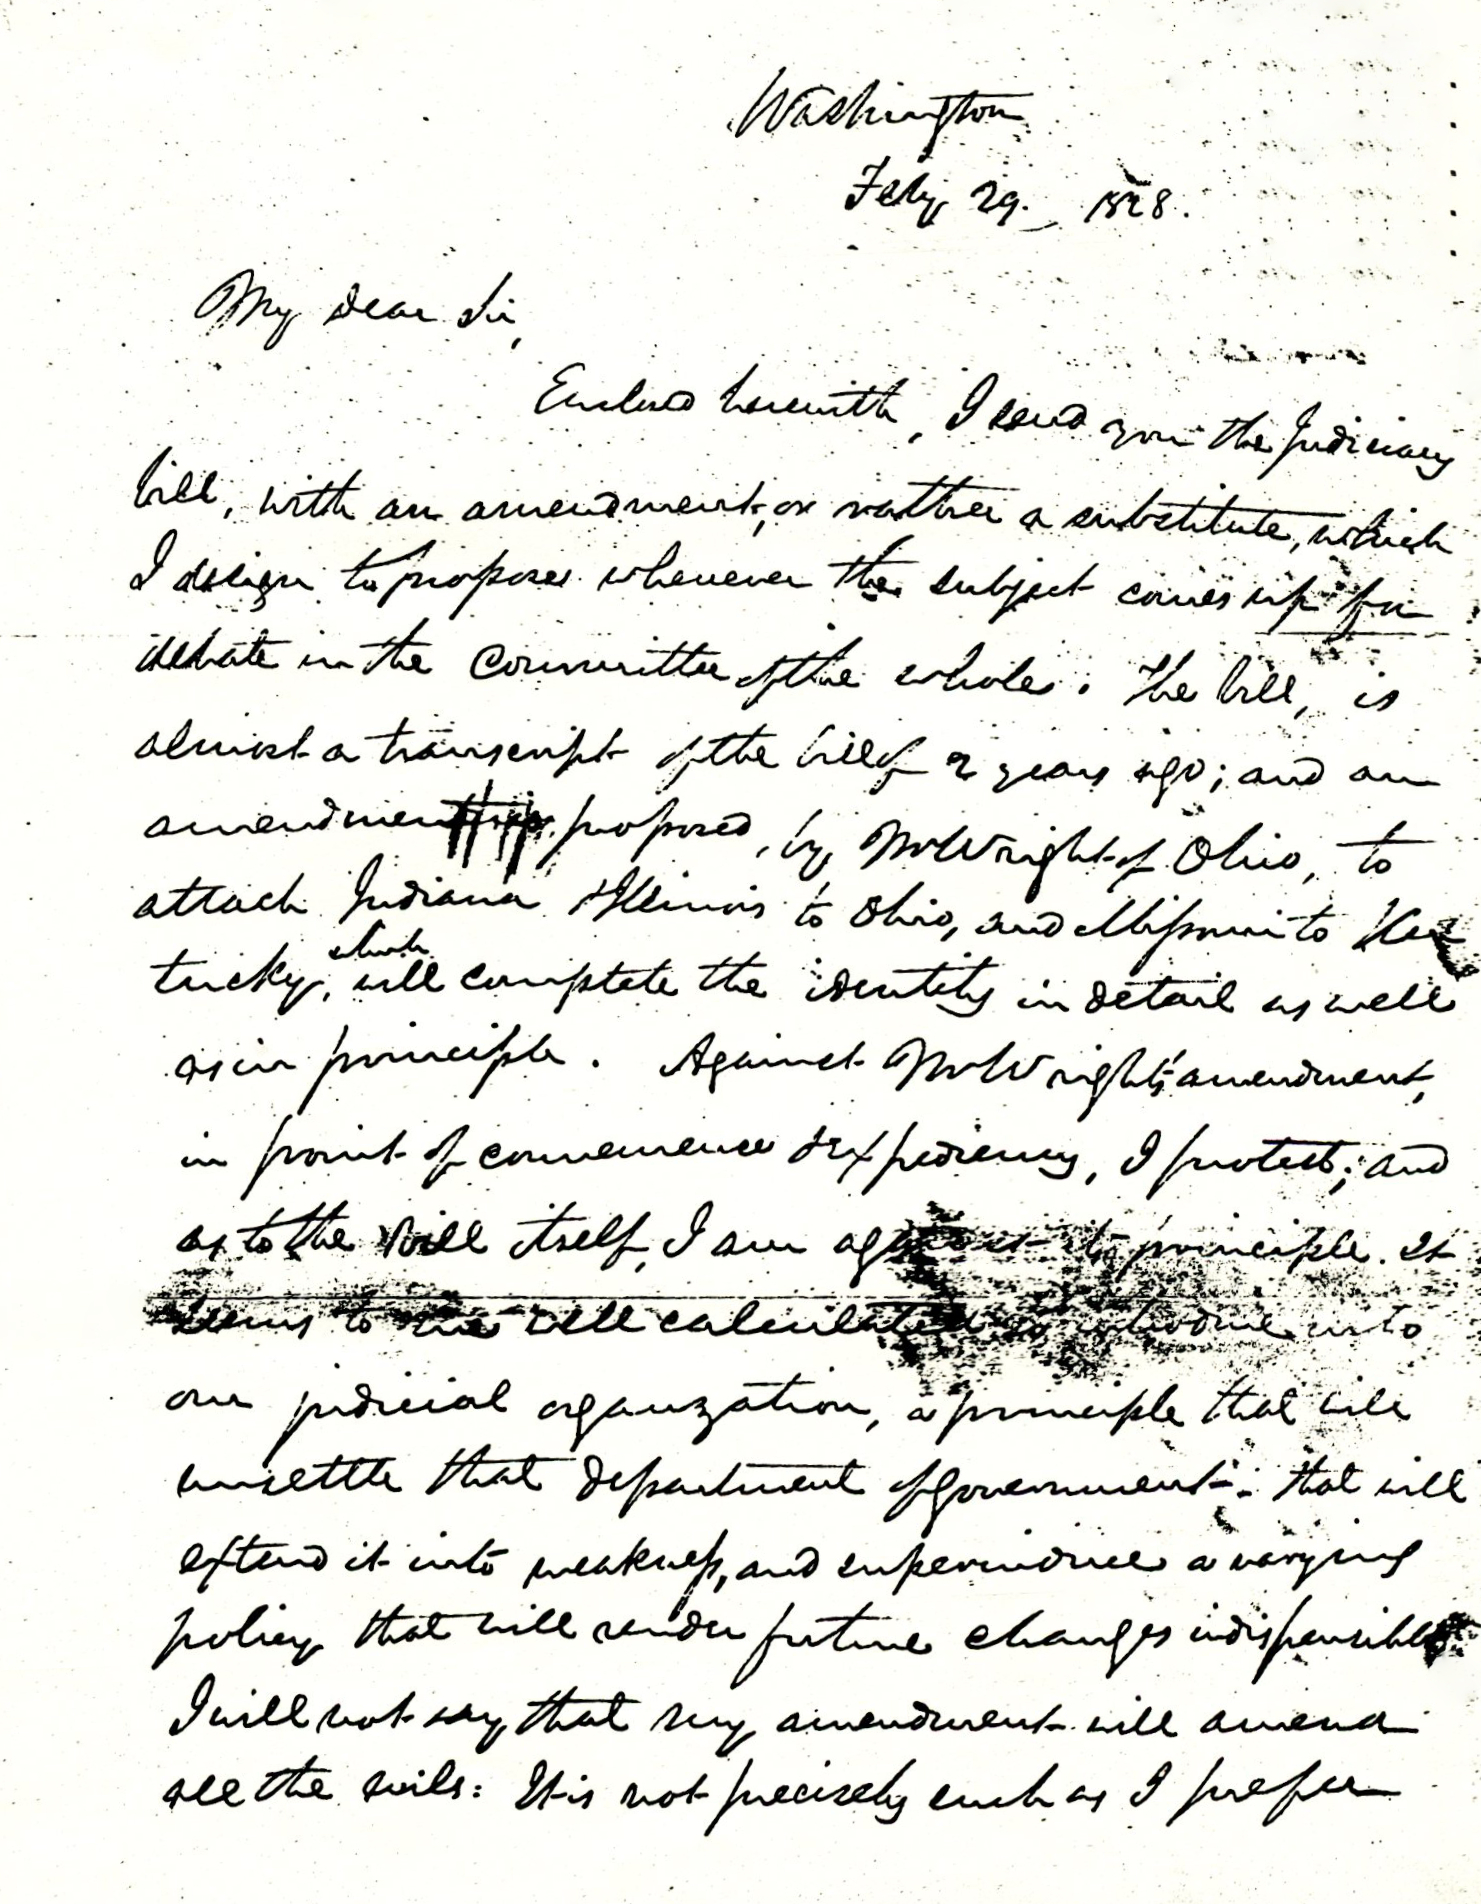 Washington
Feby 29. 1828.
My dear Sir,
Enclosed herewith, I send you the Judiciary
bill, with an amendment, or rather a substitute, which
I design to propose whenever the subject comes up for
debate in the Committee of the whole. The bill, is
almost a transcript of the bill of 2 years ago; and an
amendment proposed, by Mr Wright of Ohio, to
attach Indiana & Illinois to Ohio, and Missouri to Ken
tucky, which will complete the identity in detail as well
as in principle. Against Mr Wright's amendment,
in point of convenience & expediency, I protest; and
as to the bill itself, I am against its principle. It
seems to me well calculated to introduce into
our judicial organization, a principle that will
unsettle that department of government: that will
extend it into weakness, and superinduce a varying
policy that will render future changes indispensible
I will not say that my amendment will amend
all the evils: It is not precisely such as I prefer